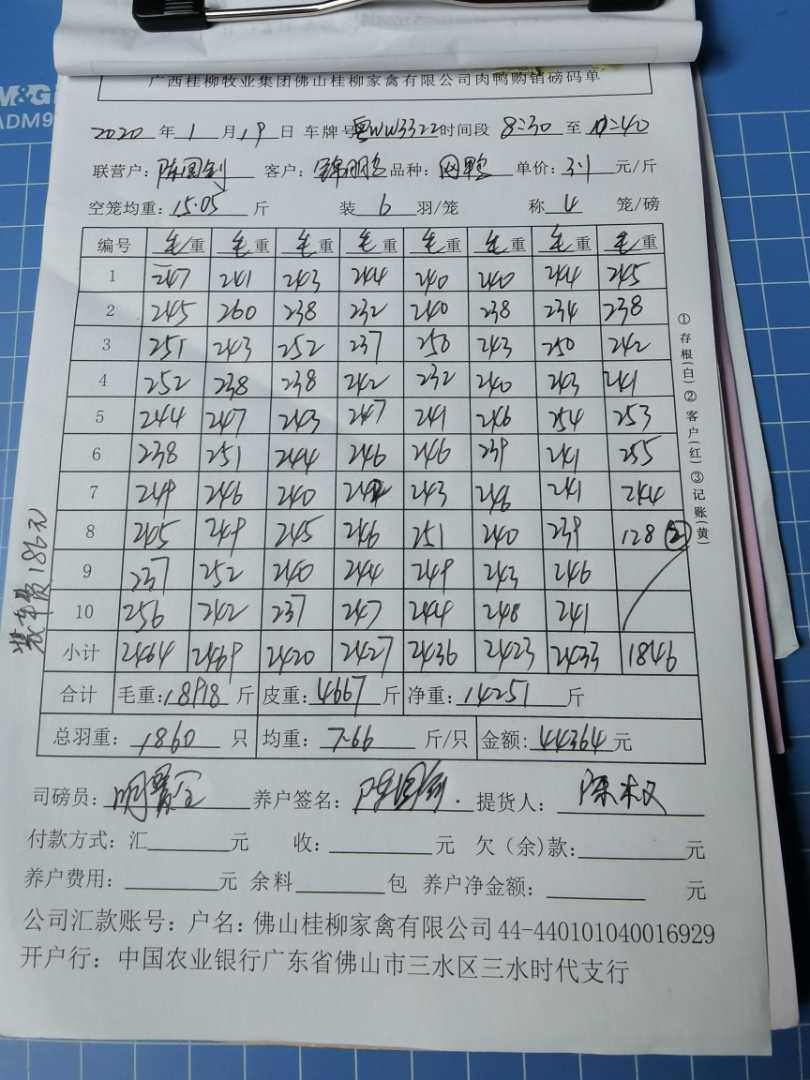 M&G
ADM9
广西桂柳牧业集团佛山桂柳家禽有限公司肉鸭购销磅码单
2020 年 1 月 19 日 车牌号 粤WW3322 时间段 8:30 至 10:40
联营户: 陈国剑 客户: 品种: 单价: 3.1 元/斤
空笼均重: 15.05 斤 装 6 羽/笼 称 4 笼/磅
编号 毛重 毛重 毛重 毛重 毛重 毛重 毛重 毛重
1 247 241 243 244 240 240 244 245
2 245 260 238 232 240 238 234 238
3 251 243 252 237 250 243 250 242
4 252 238 238 242 232 240 243 241
5 244 247 243 247 241 246 254 253
6 238 251 244 246 246 239 241 255
7 249 246 240 242 243 246 241 244
8 245 249 245 246 251 240 239 128 ②
9 237 252 240 244 249 243 246
10 256 242 237 247 244 248 241
小计 2464 2469 2420 2427 2436 2423 2433 1846
合计 毛重: 18918 斤 皮重: 4667 斤 净重: 14251 斤
总羽重: 1860 只 均重: 7.66 斤/只 金额: 44364 元
司磅员: 养户签名: 陈国剑 提货人:
付款方式: 汇 元 收: 元 欠(余)款: 元
养户费用: 元 余料 包 养户净金额: 元
公司汇款账号: 户名: 佛山桂柳家禽有限公司 44-440101040016929
开户行: 中国农业银行广东省佛山市三水区三水时代支行
装车费 186元
①存根(白)②客户(红)③记账(黄)